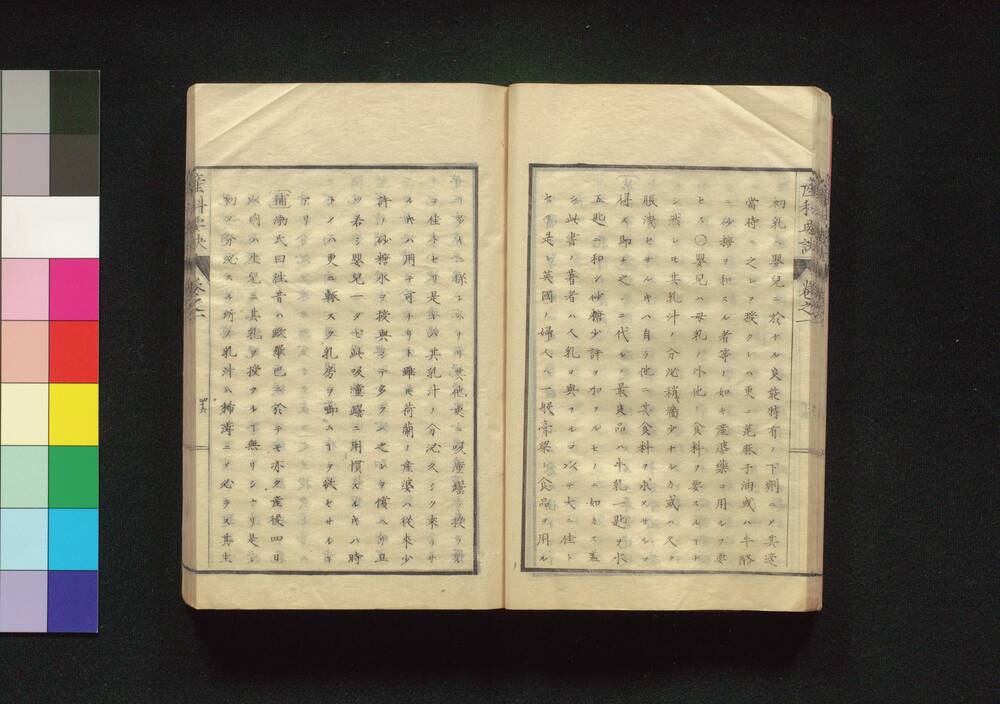 初乳ハ嬰兒ニ於ケル良能特有ノ下劑ニシテ其適
當時ニ之レヲ授クレハ更ニ蓖麻子油或ハ牛酪
ニ砂糖ヲ和スル者等ノ如キ産婆藥ヲ用ルヲ要
セス〇嬰兒ハ母乳ノ外他ノ食料ヲ要スルト
シ然レモ其乳汁ノ分泌稍菲少ナルカ或ハ久ク
脹洩セサルキハ自ラ他ニ其食料ヲ求メサルヲ
得ス即チ之ニ代ルノ最良品ハ牛乳一匙ヲ水
五匙ニ和シ砂糖少許ヲ加フルモノニ如カス蓋
シ此書ノ著者ハ人乳ヲ與フルヲ以テ大ニ佳ト
セリ是レ英國ノ婦人ハ一般膏粱ノ食品ヲ用ル
産科要訣 卷之一
其他更ニ吸 ヲ授ケ
ヲ佳トセリ是レハ其乳汁ノ分泌久シク來ラサ
ルキハ用テ可ナリト雖モ荷蘭ノ産婆ハ從來少
許ノ砂糖水ヲ授與シテ多クハ之レヲ償ヘリ且
ツ若シ嬰兒一タヒ此吸 ニ用慣スルキハ時
トノハ更ニ輒スク乳房ヲ啣ムヿヲ欲セサル
アリ
補 渤氏曰往昔ハ歐羅巴ニ於テモ亦タ産後四日
以内ハ生兒ニ其乳ヲ授クルヿ無リシナリ是
初メ分泌スル所ノ乳汁ハ稀薄ニシテ必ラス其生
産科要訣 卷之一
四十六